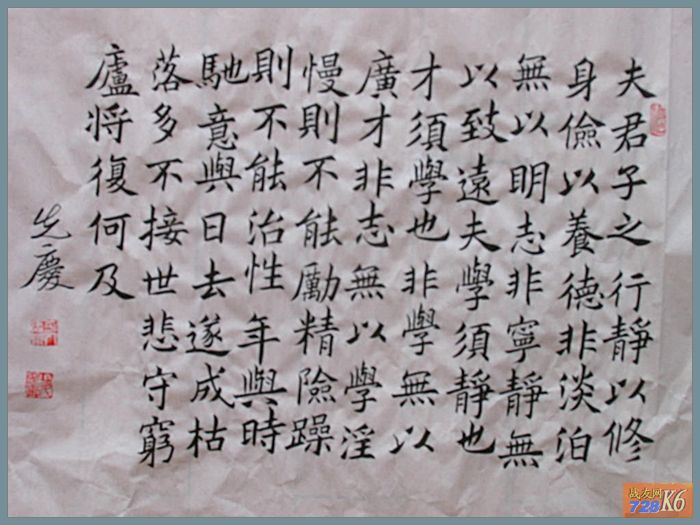 夫君子之行靜以修
身儉以養德非淡泊
無以明志非寧靜無
以致遠夫學須靜也
才須學也非學無以
廣才非志無以學淫
慢則不能勵精險躁
則不能治性年與時
馳意與日去遂成枯
落多不接世悲守窮
廬将復何及
先慶
战友网
728 K6